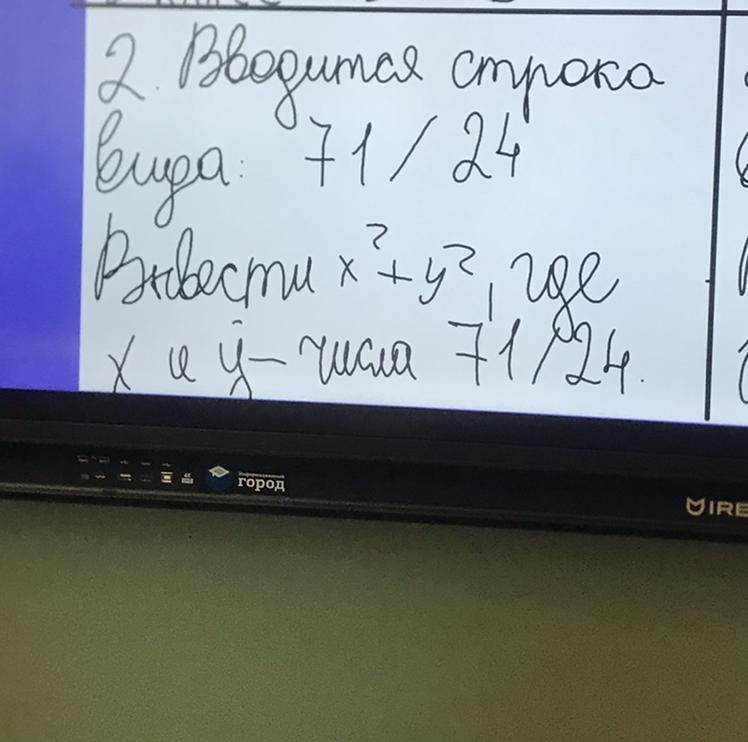 2. Вводится строка
вида: 71/24
Вывести x²+y², где
x и y - числа 71/24.
Информационный
город
IRE